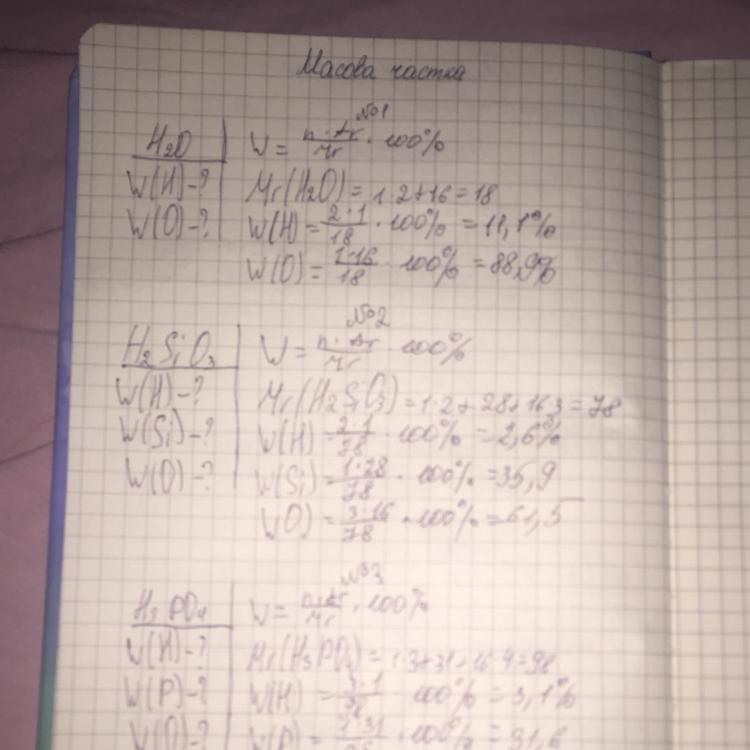 Масова частка
№1
H2O | W = n·Ar/Mr · 100%
W(H)-? | Mr(H2O) = 1·2+16 = 18
W(O)-? | W(H) = 2·1/18 · 100% = 11,1%
W(O) = 1·16/18 · 100% = 88,9%
№2
H2SiO3 | W = n·Ar/Mr · 100%
W(H)-? | Mr(H2SiO3) = 1·2+28+16·3 = 78
W(Si)-? | W(H) = 2·1/78 · 100% = 2,6%
W(O)-? | W(Si) = 1·28/78 · 100% = 35,9
W(O) = 3·16/78 · 100% = 61,5
№3
H3PO4 | W = n·Ar/Mr · 100%
W(H)-? | Mr(H3PO4) = 1·3+31+16·4 = 98
W(P)-? | W(H) = 3·1/98 · 100% = 3,1%
W(O)-? | W(P) = 1·31/98 · 100% = 31,6